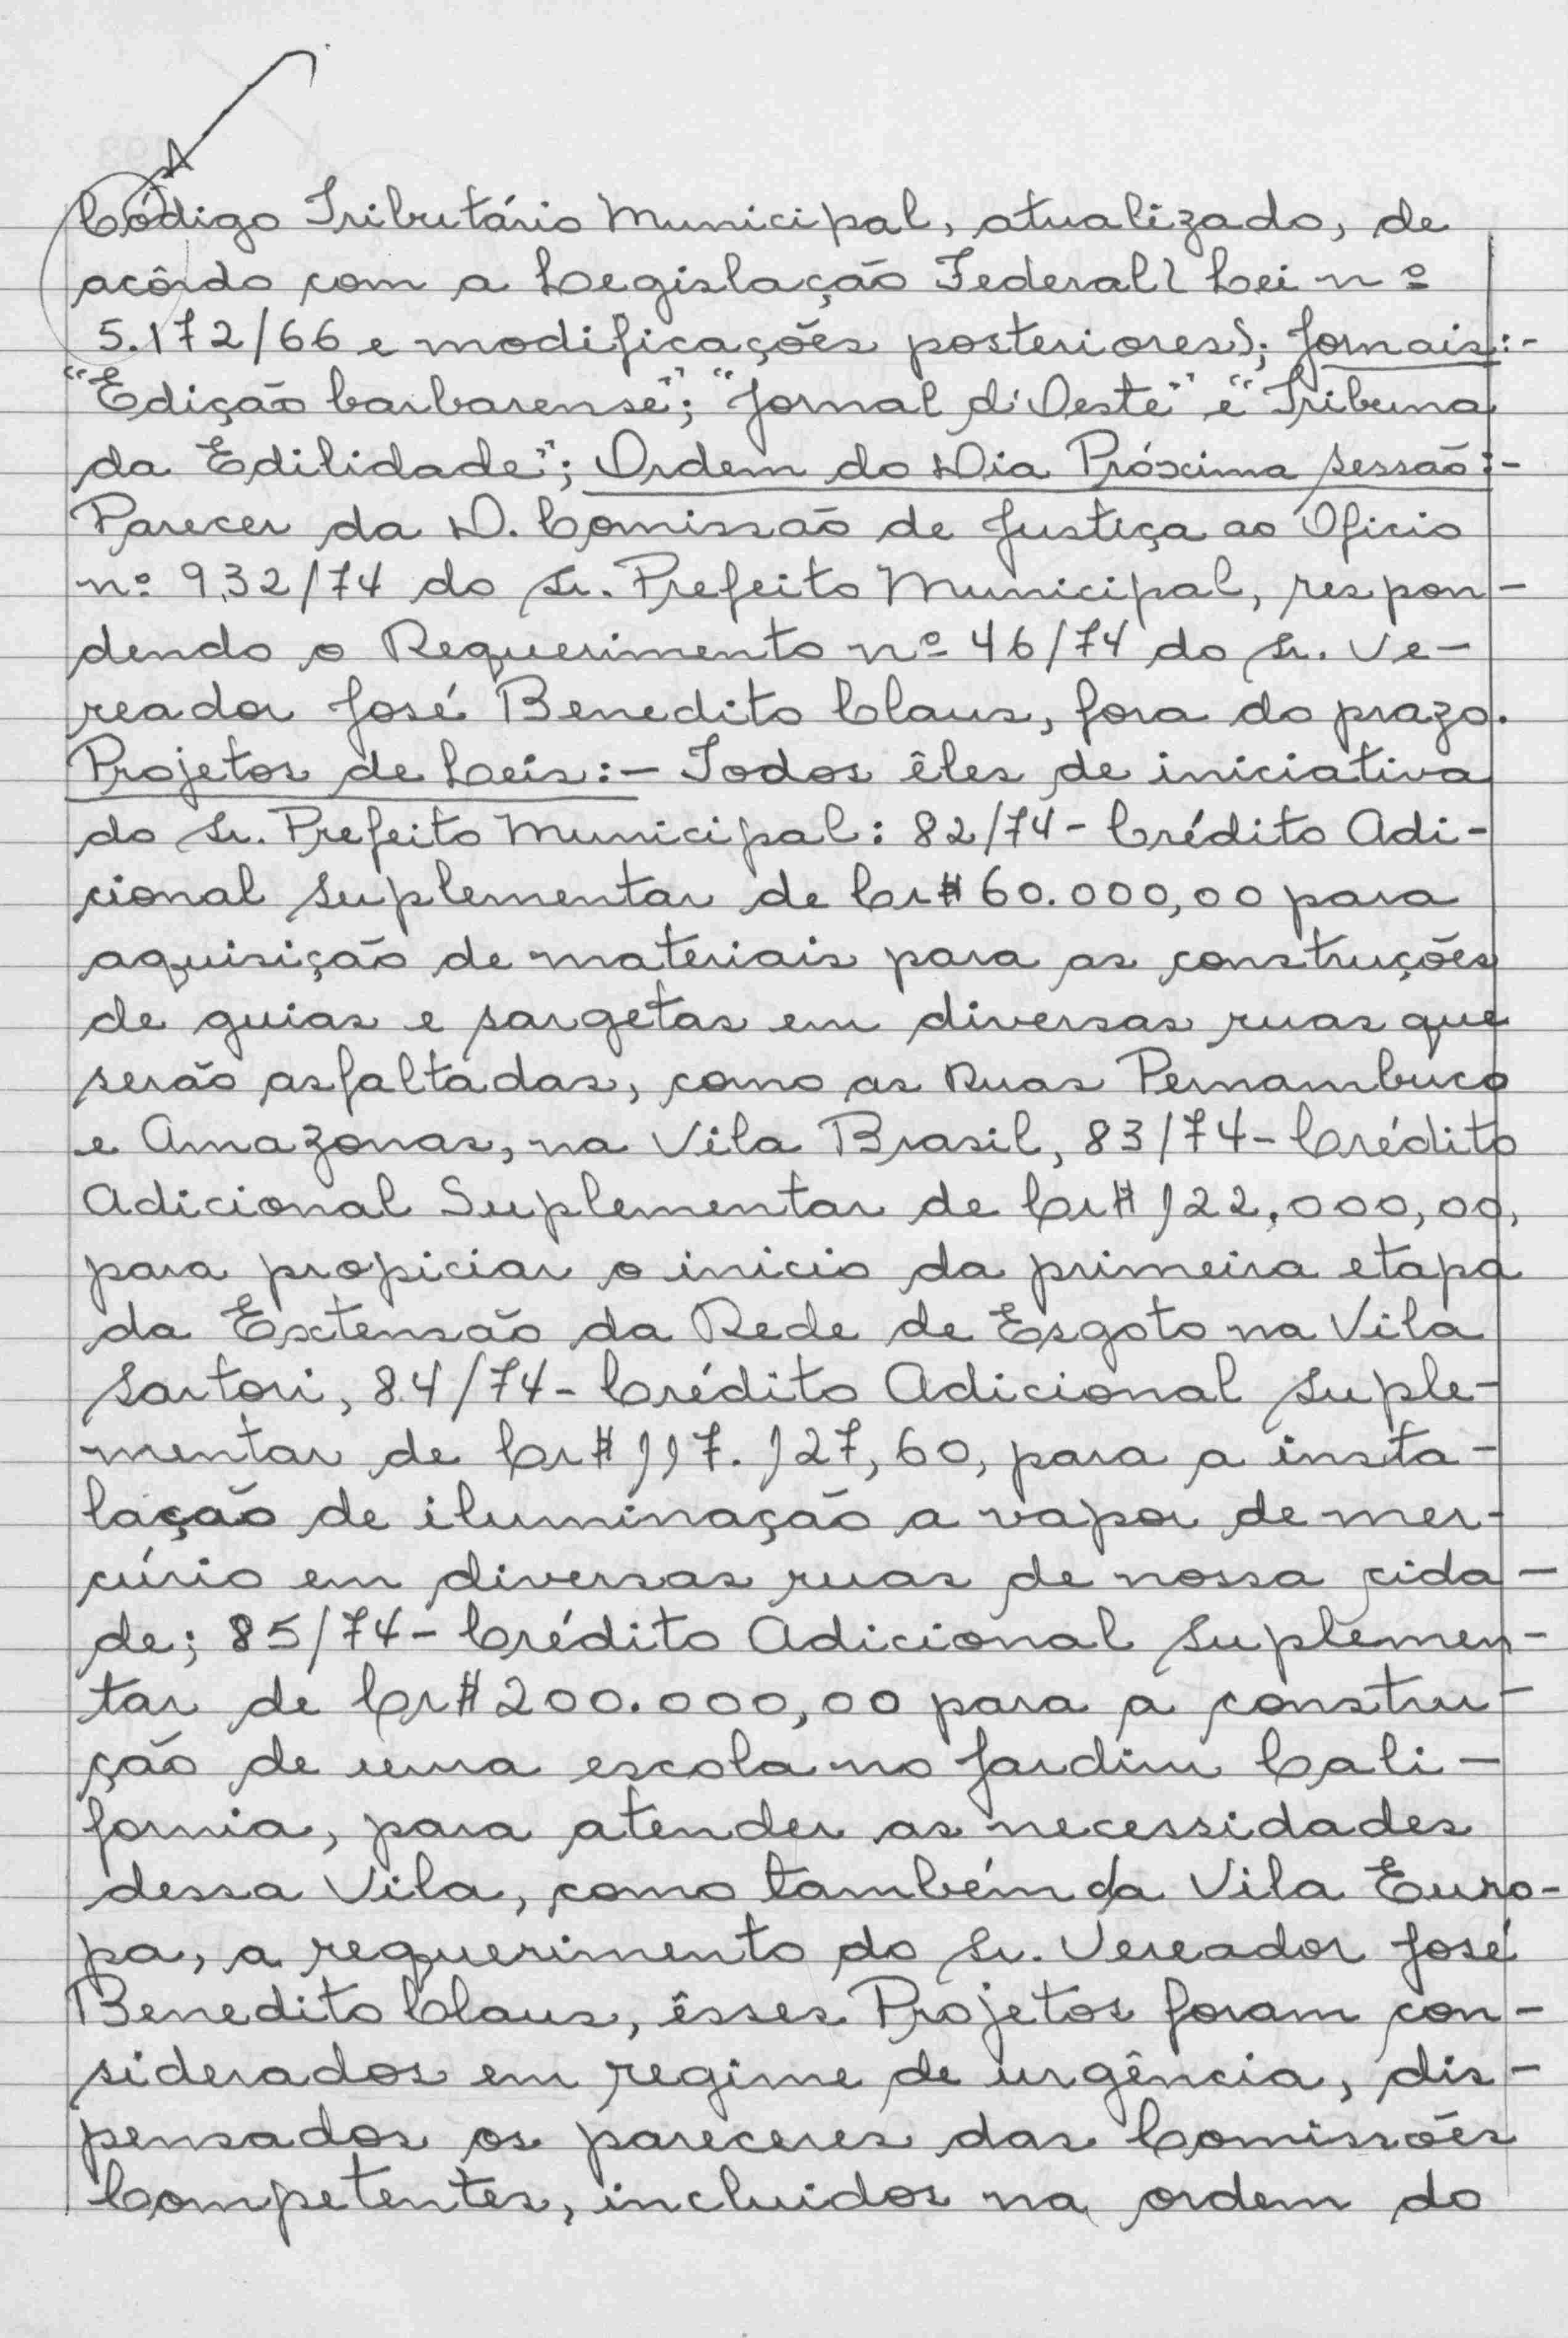 Código Tributário Municipal, atualizado, de
acôrdo com a Legislação Federal (Lei nº
5.172/66 e modificações posteriores); Jornais:-
"Edição barbarense"; "Jornal d'Oeste" e "Tribuna
da Edilidade"; Ordem do Dia Próxima Sessão:-
Parecer da D. Comissão de Justiça ao Oficio
nº 932/74 do Sr. Prefeito Municipal, respon-
dendo o Requerimento nº 46/74 do Sr. Ve-
reador José Benedito Claus, fora do prazo.
Projetos de Leis:- Todos êles de iniciativa
do Sr. Prefeito Municipal: 82/74 - Crédito Adi-
cional Suplementar de Cr$ 60.000,00 para
aquisição de materiais para as construções
de guias e sargetas em diversas ruas que
serão asfaltadas, como as Ruas Pernambuco
e Amazonas, na Vila Brasil, 83/74 - Crédito
Adicional Suplementar de Cr$ 122.000,00,
para propiciar o inicio da primeira etapa
da Extensão da Rede de Esgoto na Vila
Sartori, 84/74 - Crédito Adicional Suple-
mentar de Cr$ 117.127,60, para a insta-
lação de iluminação a vapor de mer-
cúrio em diversas ruas de nossa cida-
de; 85/74 - Crédito Adicional Suplemen-
tar de Cr$ 200.000,00 para a constru-
ção de uma escola no Jardim Cali-
fornia, para atender as necessidades
dessa Vila, como também da Vila Euro-
pa, a requerimento do Sr. Vereador José
Benedito Claus, êsses Projetos foram con-
siderados em regime de urgência, dis-
pensados os pareceres das Comissões
Competentes, incluidos na ordem do